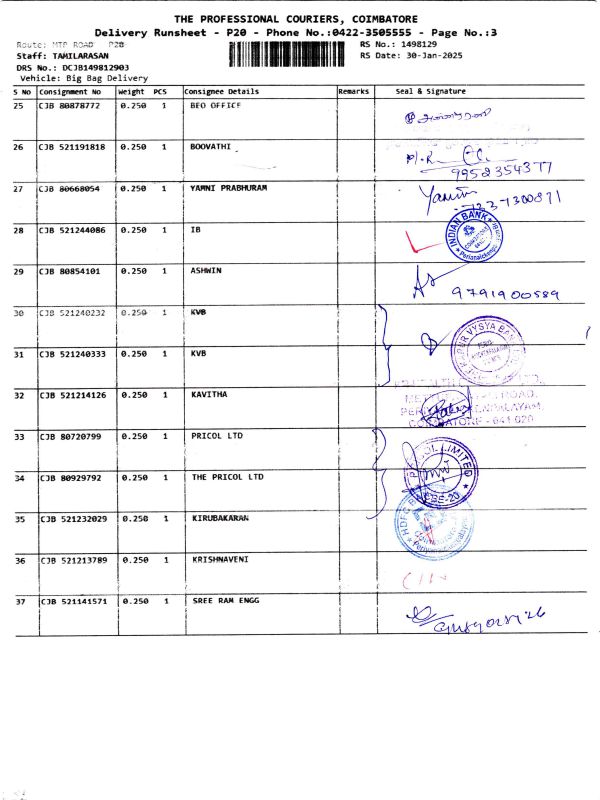 THE PROFESSIONAL COURIERS, COIMBATORE
Delivery Runsheet - P20 - Phone No.:0422-3505555 - Page No.:3
Route: MTP ROAD P20 RS No.: 1498129
Staff: TAMILARASAN RS Date: 30-Jan-2025
DRS No.: DCJB149812903
Vehicle: Big Bag Delivery
S No Consignment No Weight PCS Consignee Details Remarks Seal & Signature
25 CJB 80878772 0.250 1 BEO OFFICE
26 CJB 521191818 0.250 1 BOOVATHI
9952354377
27 CJB 80668054 0.250 1 YAMNI PRABHURAM
28 CJB 521244086 0.250 1 IB
INDIAN BANK
29 CJB 80854101 0.250 1 ASHWIN
9791900589
30 CJB 521240232 0.250 1 KVB
31 CJB 521240333 0.250 1 KVB
VYSYA BANK
32 CJB 521214126 0.250 1 KAVITHA
ROAD,
COIMBATORE - 641 020.
33 CJB 80720799 0.250 1 PRICOL LTD
LIMITED
34 CJB 80929792 0.250 1 THE PRICOL LTD
CBE-20
35 CJB 521232029 0.250 1 KIRUBAKARAN
HDFC
36 CJB 521213789 0.250 1 KRISHNAVENI
37 CJB 521141571 0.250 1 SREE RAM ENGG